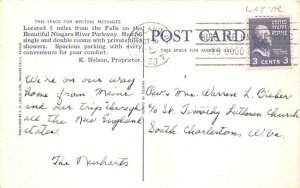 THIS SPACE FOR WRITING MESSAGES
Located 5 miles from the Falls on the
Beautiful Niagara River Parkway. Rooms
single and double rooms with private
showers. Spacious parking with every
convenience for guests.
K. Nelson, Proprietor.
We're on our way
home from Maine
and our trip through
all the New England
states.
The Neuharts
POST CARD
THIS SPACE FOR ADDRESS
3 CENTS 3
Rev & Mrs. Warren L. Bieber
c/o St. Timothy Lutheran Church
South Charleston W. Va.